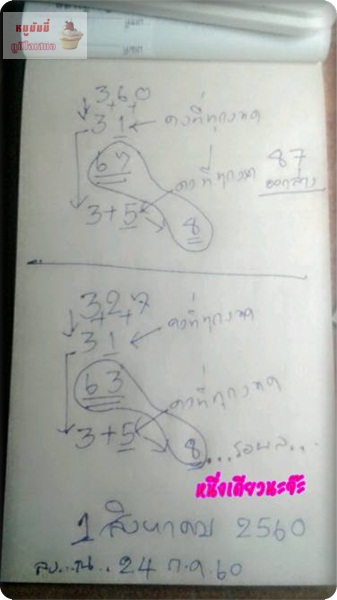 หมูมัมมี่
360
+ +
31 คงที่ทุกงวด
67 87
คงที่ทุกงวด ออกล่าง
3+5 8
327
+ +
31 คงที่ทุกงวด
63
คงที่ทุกงวด
3+5 8...รอผล...
หนึ่งเดียวนะจ๊ะ
1 สิงหาคม 2560
24 ก.ค. 60